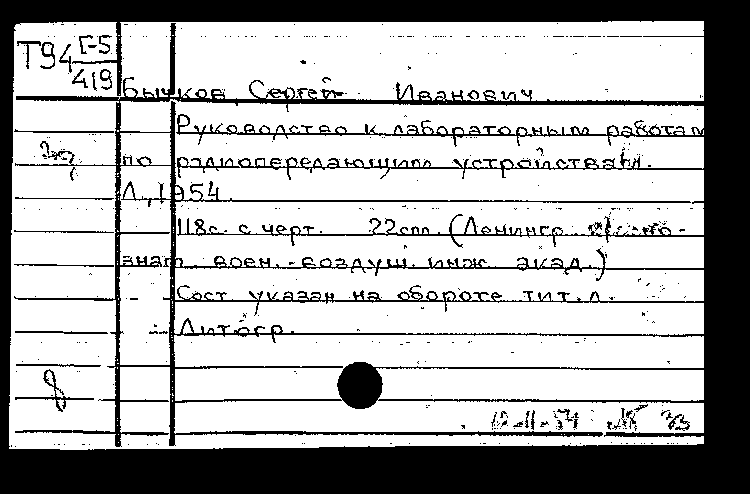 Т94 Г-5
419
Бычков, Сергей Иванович.
Руководство к лабораторным работам
по радиопередающим устройствам.
Л., 1954.
118с. с черт. 22см. (Ленингр. Красно-
знам. воен.-воздуш. инж. акад.)
Сост указан на обороте тит. л.
Литогр.
8
33